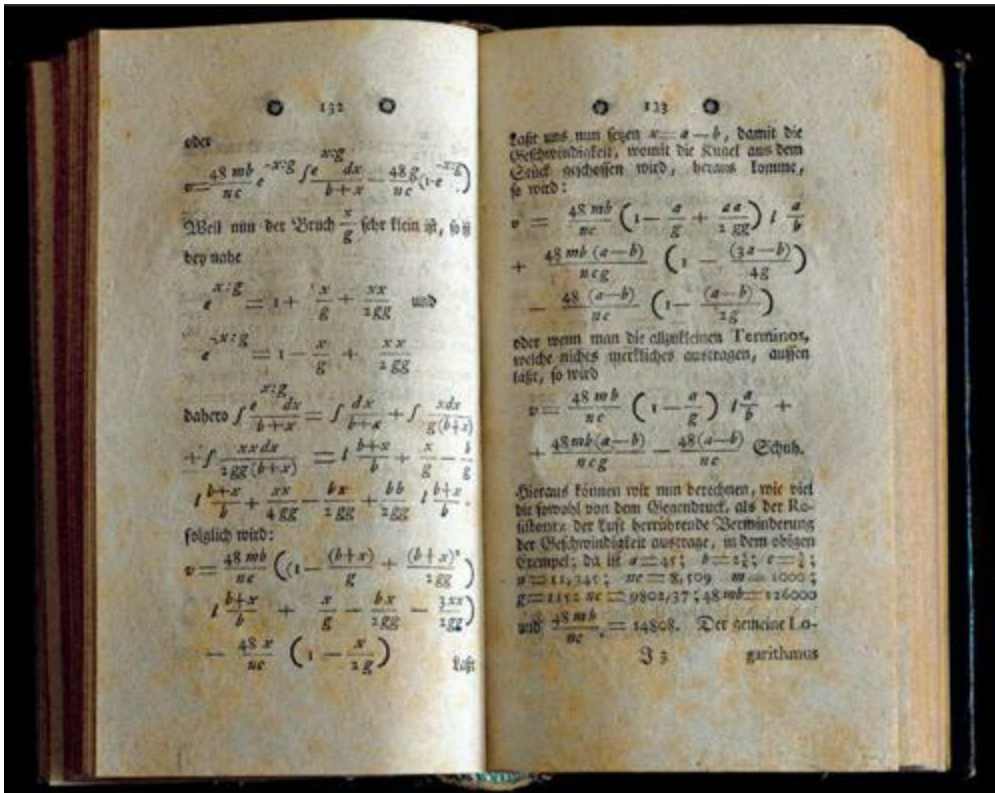 132
oder
v = 48 mb/nc e^-x:g ∫ e^x:g dx/b+x - 48 g/nc (1-e^-x:g)
Weil nun der Bruch x/g sehr klein ist, so ist
bey nahe
e^x:g = 1 + x/g + xx/2gg und
e^-x:g = 1 - x/g + xx/2gg
dahero ∫ e^x:g dx/b+x = ∫ dx/b+x + ∫ xdx/g(b+x)
+ ∫ xxdx/2gg(b+x) = l b+x/b + x/g - b/g
l b+x/b + xx/4gg - bx/2gg + bb/2gg l b+x/b.
folglich wird:
v = 48 mb/nc ((1 - (b+x)/g + (b+x)²/2gg)
l b+x/b + x/g - bx/2gg - 3xx/2gg)
- 48 x/nc (1 - x/2g)
Laßt
133
Laßt uns nun setzen x = a - b, damit die
Geschwindigkeit, womit die Kugel aus dem
Stück geschossen wird, heraus komme,
so wird:
v = 48 mb/nc (1 - a/g + aa/2gg) l a/b
+ 48 mb (a-b)/ncg (1 - (3a-b)/4g)
- 48 (a-b)/nc (1 - (a-b)/2g)
oder wenn man die allzukleinen Terminos,
welche nichts merkliches austragen, aussen
läßt, so wird
v = 48 mb/nc (1 - a/g) l a/b +
+ 48 mb(a-b)/ncg - 48(a-b)/nc Schuh.
Hieraus können wir nun berechnen, wie viel
die sowohl von dem Gegendruck, als der Re-
sistentz der Luft herrührende Verminderung
der Geschwindigkeit austrage, in dem obigen
Exempel; da ist a = 45; c = ¾;
n = 11,345; nc = 8,509 m = 1000;
g = 1152 nc = 9802,37; 48 mb = 126000
und 48 mb/nc = 14808. Der gemeine Lo-
J 3 garithmus